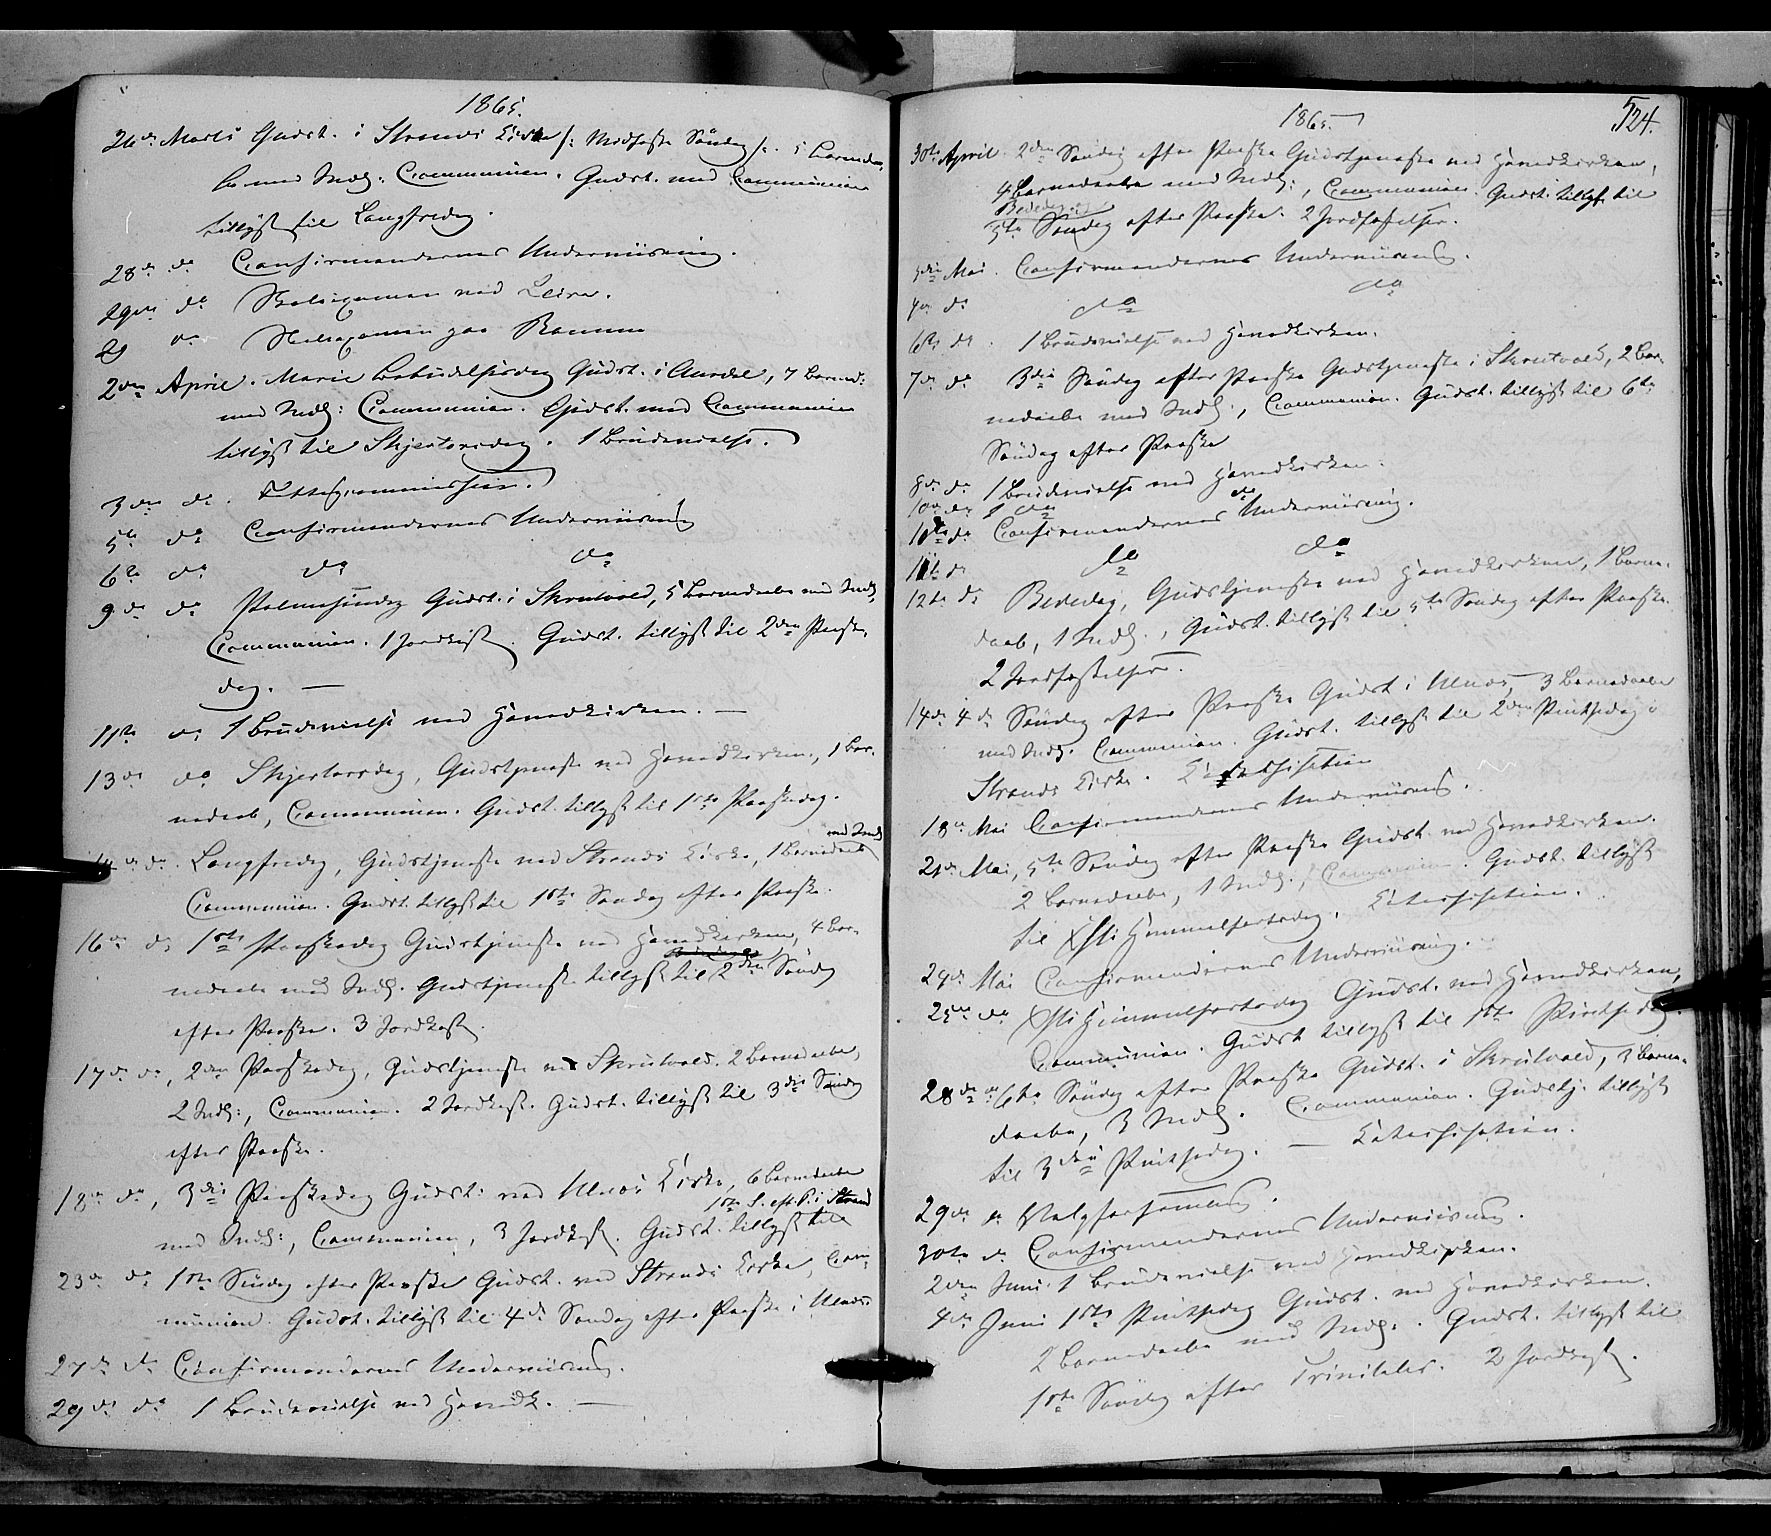 1865.
26de Marts Gudst. i Strands Kirke /: Midfaste Søndag /. 5 Barnedaa-
be med Indl: Communion. Gudst. med Communion
tillyst til Langfredag.
28de do Confirmandernes Underviisning.
29de do Skoleexamen ved Leira.
29 do Skoleexamen paa
2den April. Marie Bebudelsesdag Gudst. i Aurdal, 7 Barned:
med Indl: Communion. Gudst. med Communion
tillyst til Skjertorsdag. 1 Brudevielse.
3die do. Fattigcommission.
5te do Confirmandernes Underviisning
6te do do do
9de do Palmesøndag Gudst. i Skrutvold, 5 Barnedaabe med Indl,
Communion. 1 Jordkast. Gudst. tillyst til 2den Paaske-
dag. —
11te do 1 Brudevielse ved Hovedkirken. —
13de do Skjertorsdag, Gudstjeneste ved Hovedkirken, 1 Bar-
nedaab, Communion. Gudst. tillyst til 1ste Paaskedag.
med Indl
14de do. Langfredag, Gudstjeneste ved Strands Kirke, 1 Barnedaab
Communion. Gudst. tillyst til 1ste Søndag efter Paaske.
16de do 1ste Paaskedag Gudstjeneste ved Hovedkirken, 4 Bar-
nedaabe med Indl. Gudstjeneste tillyst til 2den Søndag
efter Paaske. 3 Jordkast.
17de do, 2den Paaskedag, Gudstjeneste ved Skrutvold. 2 Barnedaabe,
2 Indl:, Communion. 2 Jordkast. Gudst. tillyst til 3die Søndag
efter Paaske.
18de do, 3die Paaskedag Gudst: ved Ulnæs Kirke, 6 Barnedaabe
1ste S. eft. P. i Strand
med Indl:, Communion, 3 Jordkast. Gudst. tillyst til
23de do 1ste Søndag efter Paaske Gudst. ved Strands Kirke, Com-
munion. Gudst. tillyst til 4de Søndag efter Paaske i Ulnæs
27de do Confirmandernes Underviisning.
29de do 1 Brudevielse ved Hovedk. —
1865.
524.
30te April. 2den Søndag efter Paaske Gudstjeneste ved Hovedkirken,
4 Barnedaabe med Indl:, Communion. Gudst. tillyst til
Bededag og
5te Søndag efter Paaske. 2 Jordfæstelser.
3die Mai. Confirmandernes Underviisning.
4de do do do
6te do. 1 Brudevielse ved Hovedkirken.
7de do 3die Søndag efter Paaske Gudstjeneste i Skrutvold, 2 Bar-
nedaabe med Indl., Communion. Gudst. tillyst til 6te
Søndag efter Paaske
8de do 1 Brudevielse ved Hovedkirken.
10de do 1 do do
10de do Confirmandernes Underviisning.
11te do do do
12te do Bededag, Gudstjeneste ved Hovedkirken, 1 Barne-
daab, 1 Indl., Gudst. tillyst til 5te Søndag efter Paaske.
2 Jordfæstelser.
14de 4de Søndag efter Paaske Gudst i Ulnæs, 3 Barnedaabe
med Indl. Communion. Gudst. tillyst til 2den Pintsedag i
Strands Kirke. Katechisation
18de Mai Confirmandernes Underviisning.
21de Mai, 5te Søndag efter Paaske Gudst. ved Hovedkirken.
2 Barnedaabe, 1 Indl., Communion. Gudst. tillyst
til Xsti Himmelfartsdag. Katechisation.
24de Mai Confirmandernes Underviisning.
25de do Xsti Himmelfartsdag Gudst. ved Hovedkirken,
Communion. Gudst tillyst til 1ste Pintsedag.
28de do 6te Søndag efter Paaske Gudst. i Skrutvold, 3 Barne-
daabe, 3 Indl. Communion. Gudstj. tillyst
til 3die Pintsedag. — Katechisation.
29de do Valgforsamling.
30te do Confirmandernes Underviisning.
2den Juni 1 Brudevielse ved Hovedkirken.
4de Juni 1ste Pintsedag Gudst. ved Hovedkirken.
2 Barnedaabe med Indl. . Gudst. tillyst til
1ste Søndag efter Trinitatis. 2 Jordkast.